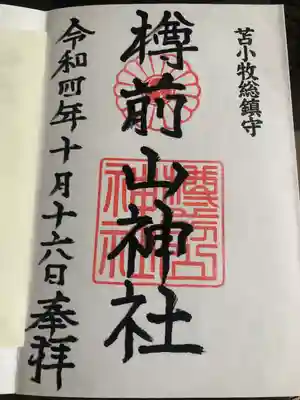 苫小牧総鎮守
樽前山神社
樽前山神社
令和四年十月十六日奉拝